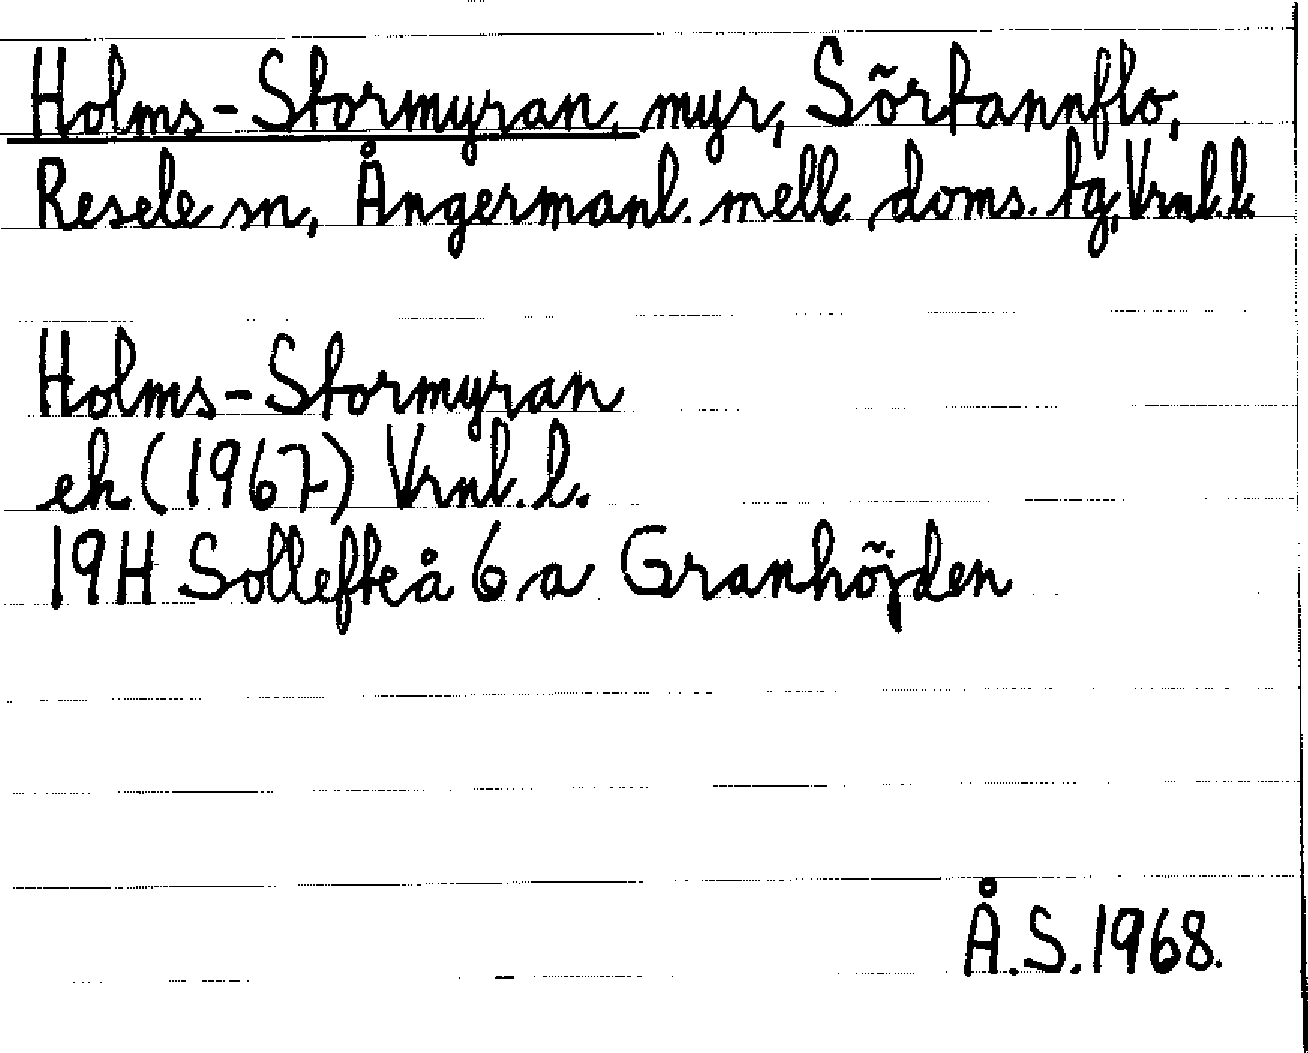 Holms-Stormyran, myr, Sörtannflo,
Resele sn, Ångermanl. mell. doms. tg, Vrnl. l.
Holms-Stormyran
ek (1967) Vrnl. l.
19H Sollefteå 6 a Granhöjden
Å.S. 1968.